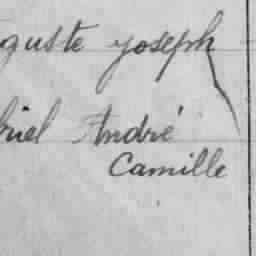 guste Joseph
riel André
Camille